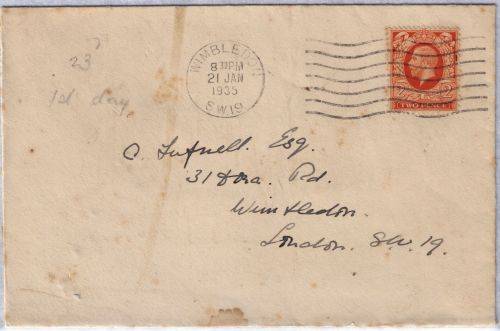 23
1st day
WIMBLEDON
8 30 PM
21 JAN
1935
S.W.19
TWO PENCE
C. Tufnell. Esq.
31 Dora. Rd.
Wimbledon.
London. SW. 19.